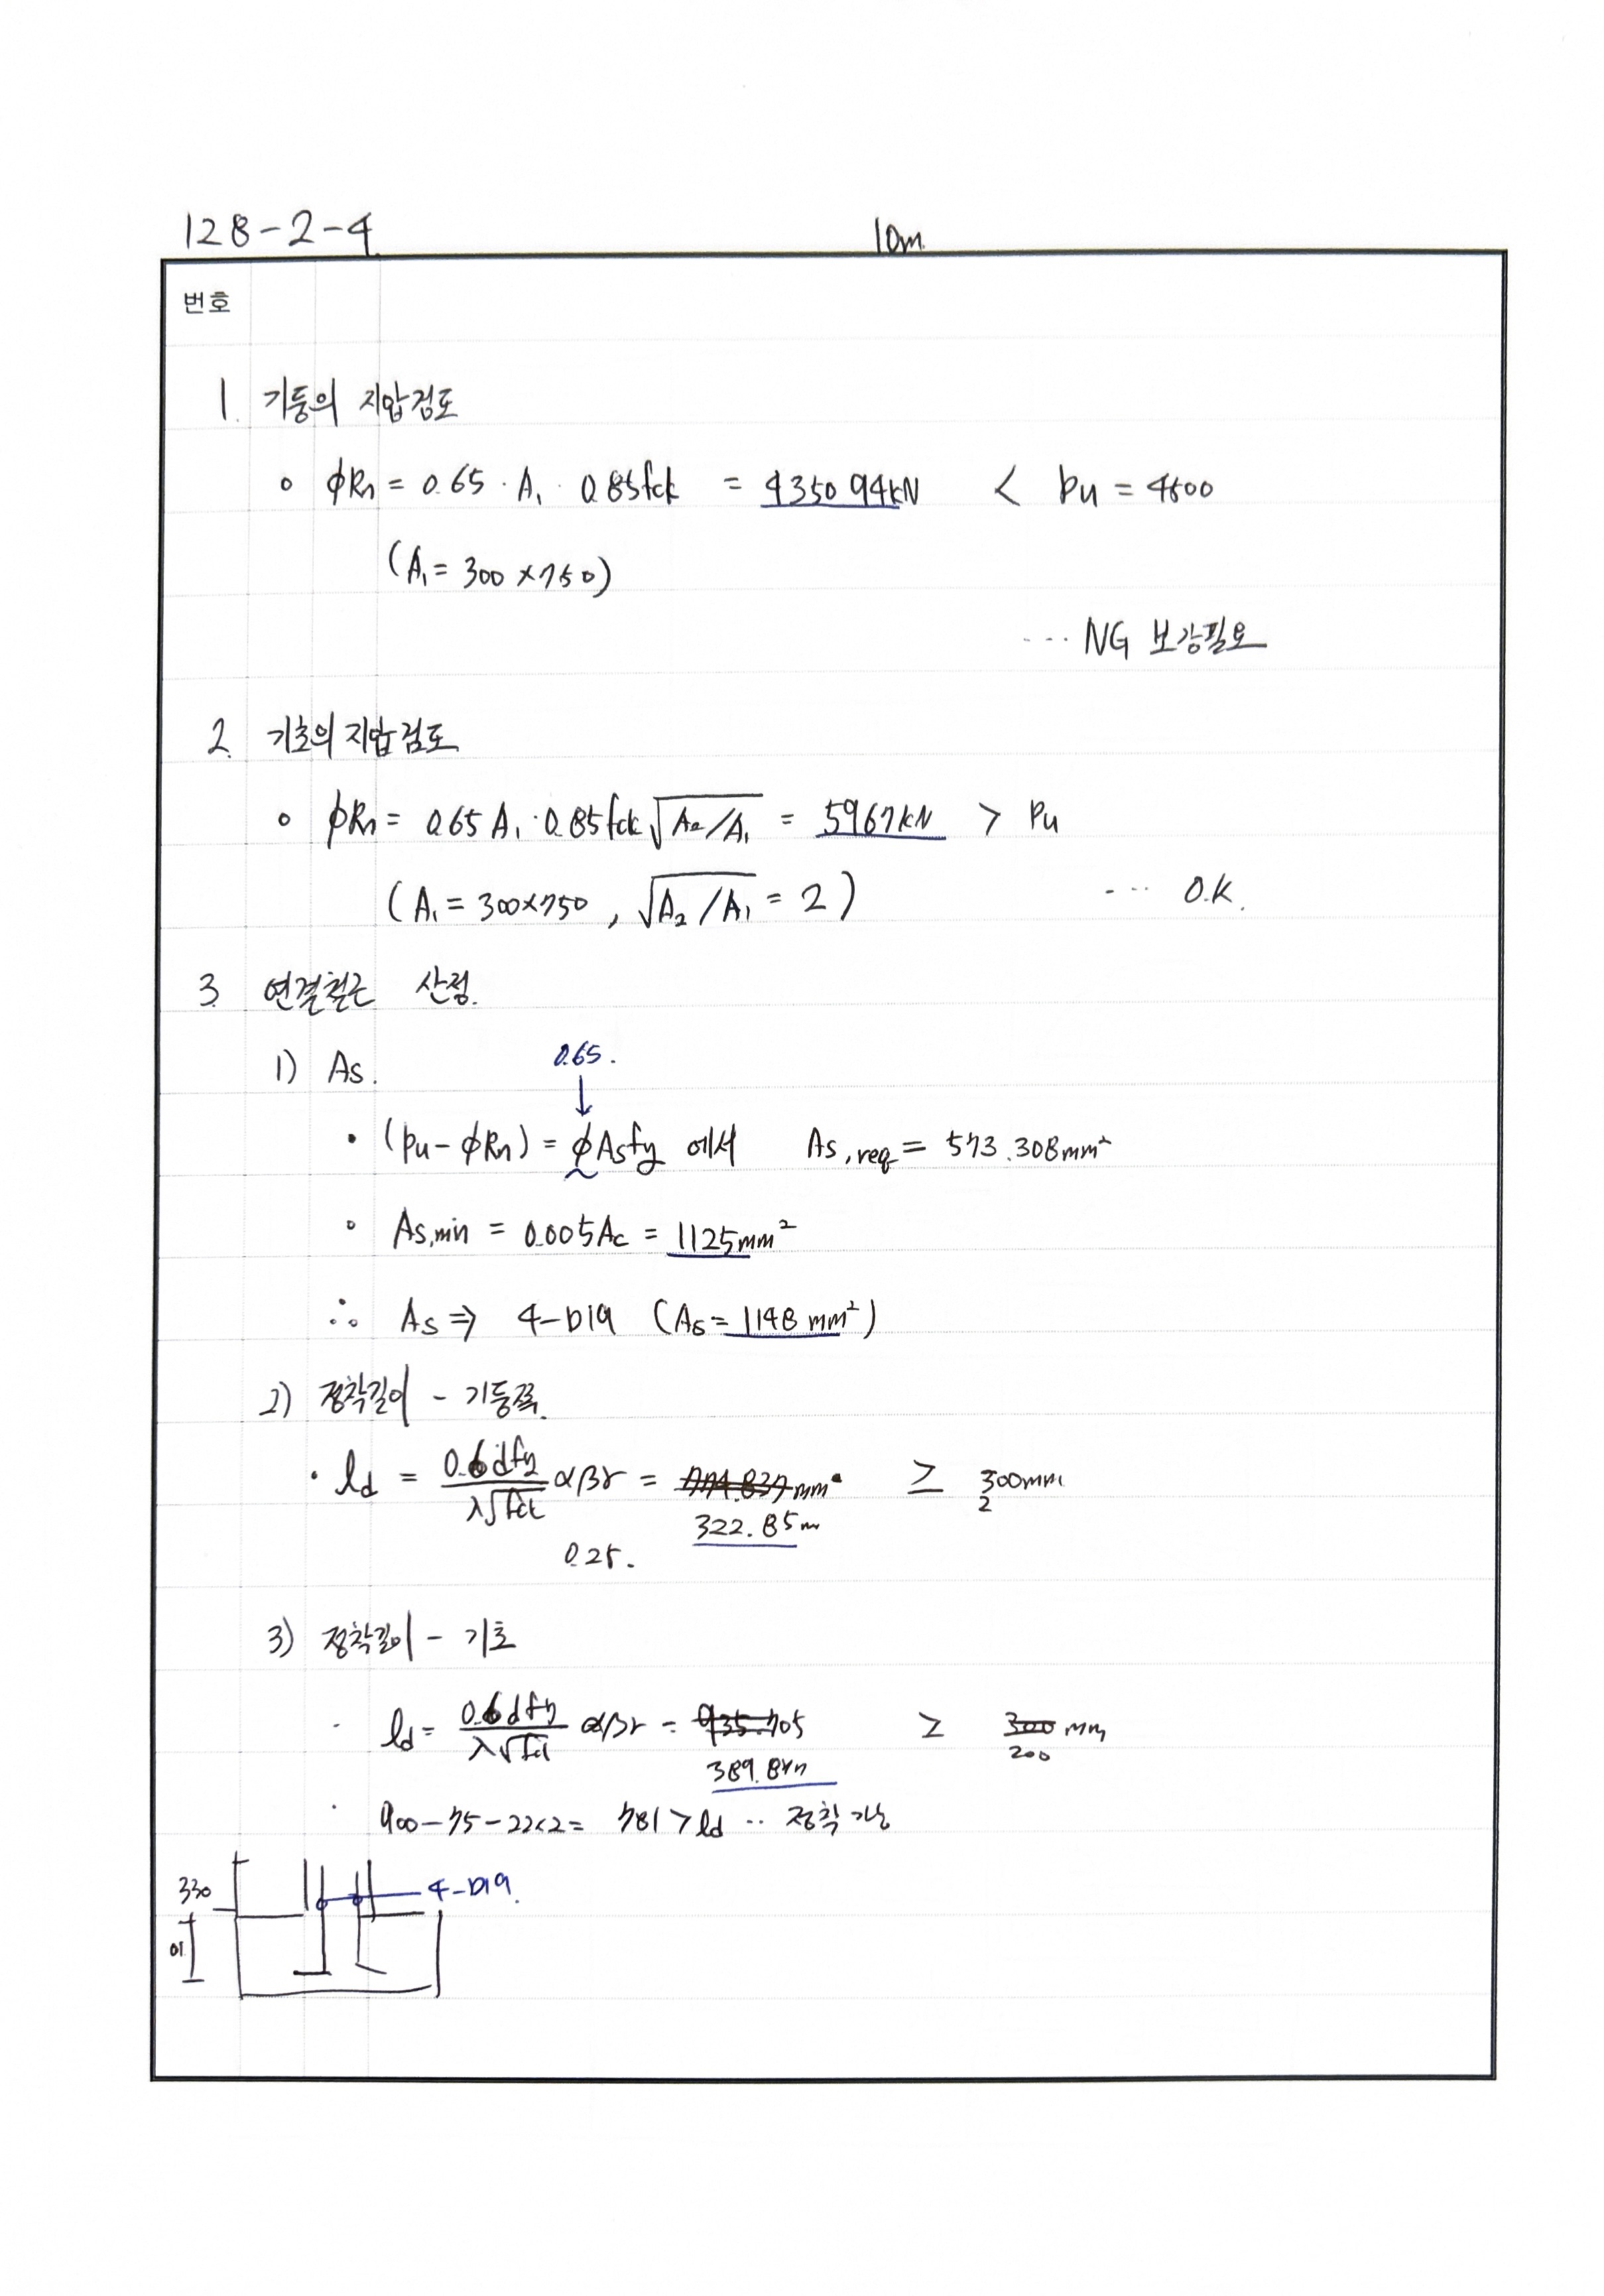 128-2-4
10m
번호
1. 기둥의 지압검토
∘ ϕRn = 0.65 · A₁ · 0.85fck = 4350.94kN < Pu = 4500
(A₁ = 300×750)
··· NG 보강필요
2. 기초의 지압검토
∘ ϕRn = 0.65 A₁ · 0.85fck √A₂/A₁ = 5967kN > Pu
(A₁ = 300×750 , √A₂/A₁ = 2)
··· O.K.
3. 연결철근 산정.
0.65.
1) As.
• (Pu - ϕRn) = ϕAsfy 에서 As,req = 573.308mm²
∘ As,min = 0.005Ac = 1125mm²
∴ As ⇒ 4-D19 (As = 1148 mm²)
2) 정착길이 - 기둥쪽.
· ld = 0.6dfy / λ√fck αβγ = mm ≥ 300mm
322.85m 2
0.25.
3) 정착길이 - 기초
· ld = 0.6dfy / λ√fck αβγ = 935.705 ≥ 300 mm
389.8 200
· 900-75-22×2 = 781 > ld ·· 정착가능
330 4-D19.